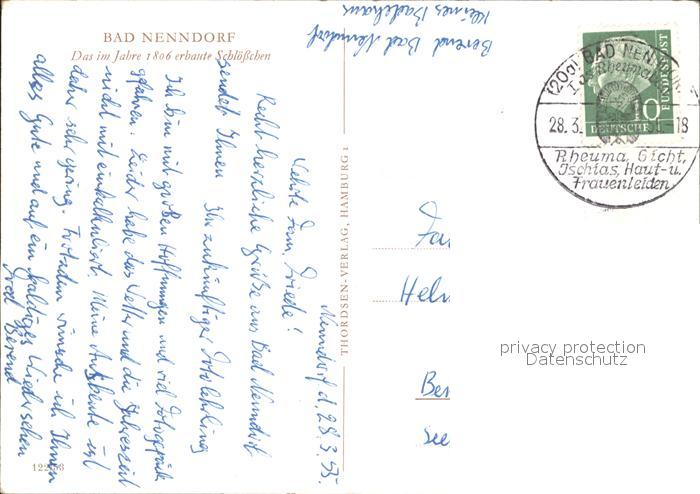 BAD NENNDORF
Das im Jahre 1806 erbaute Schlößchen
Berend Bad Nenndorf
Kleines Badehaus
Nenndorf d. 28.3.55.
Liebste Fam. Friede!
Recht herzliche Grüße aus Bad Nenndorf
sendet Ihnen
Ihr zukünftiger Fotolehrling
Ich bin mit großen Hoffnungen und viel Fotogepäck
gefahren. Leider habe das Wetter und die Jahreszeit
nicht mit einkalkuliert. Meine Ausbeute ist
daher sehr gering. Trotzdem wünsche ich Ihnen
alles Gute und auf ein baldiges Wiedersehen
Berend
THORDSEN-VERLAG, HAMBURG 1
122
Fa
Hel
Be
See
(20a) BAD NENN
28.3.
18
Rheuma, Gicht,
Ischias, Haut-u.
Frauenleiden
10
DEUTSCHE
BUNDESPOST
privacy protection
Datenschutz